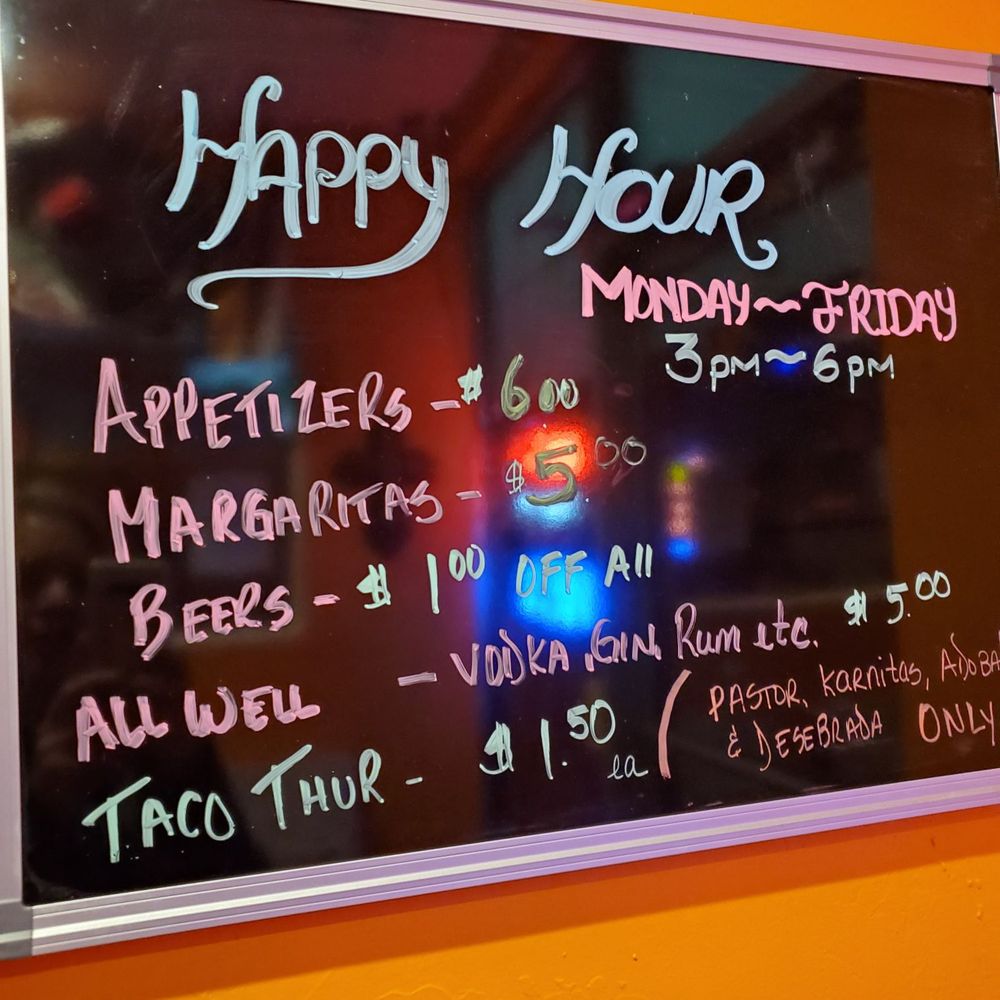 HAPPY HOUR
MONDAY~FRIDAY
3pm~6pm
APPETIZERS - $6 00
MARGARITAS - $5.00
BEERS - $1 00 OFF All
ALL WELL - VODKA, GIN, Rum etc. $5.00
TACO THUR - $1.50 ea
PASTOR, KARNITAS, ADOBA
& DESEBRADA ONLY